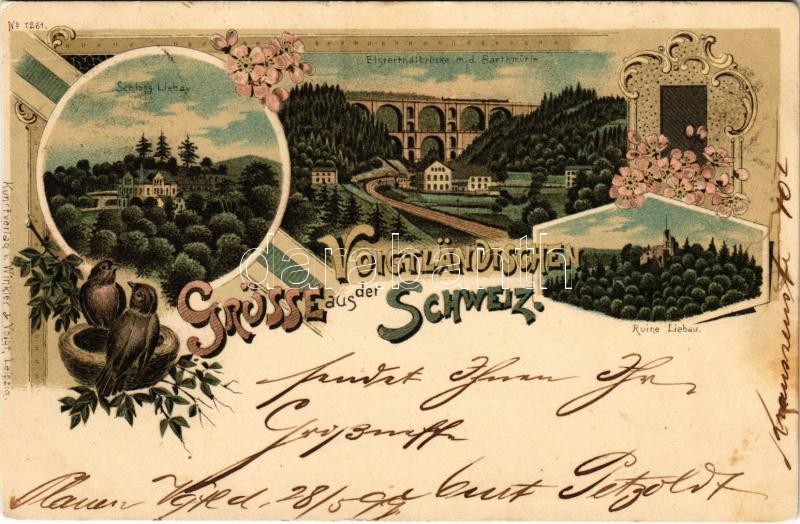 No 1261.
Schloss Liebau
Elsterthalbrücke m. d. Barthmühle
GRÜSSE aus der
VOIGTLÄNDISCHEN
SCHWEIZ.
Ruine Liebau.
Kunstverlag v. Winkler & Voigt, Leipzig.
darabanth
sendet Ihnen Ihr
Großneffe
Plauen Vgtld. 28/5 99 Curt Petzoldt